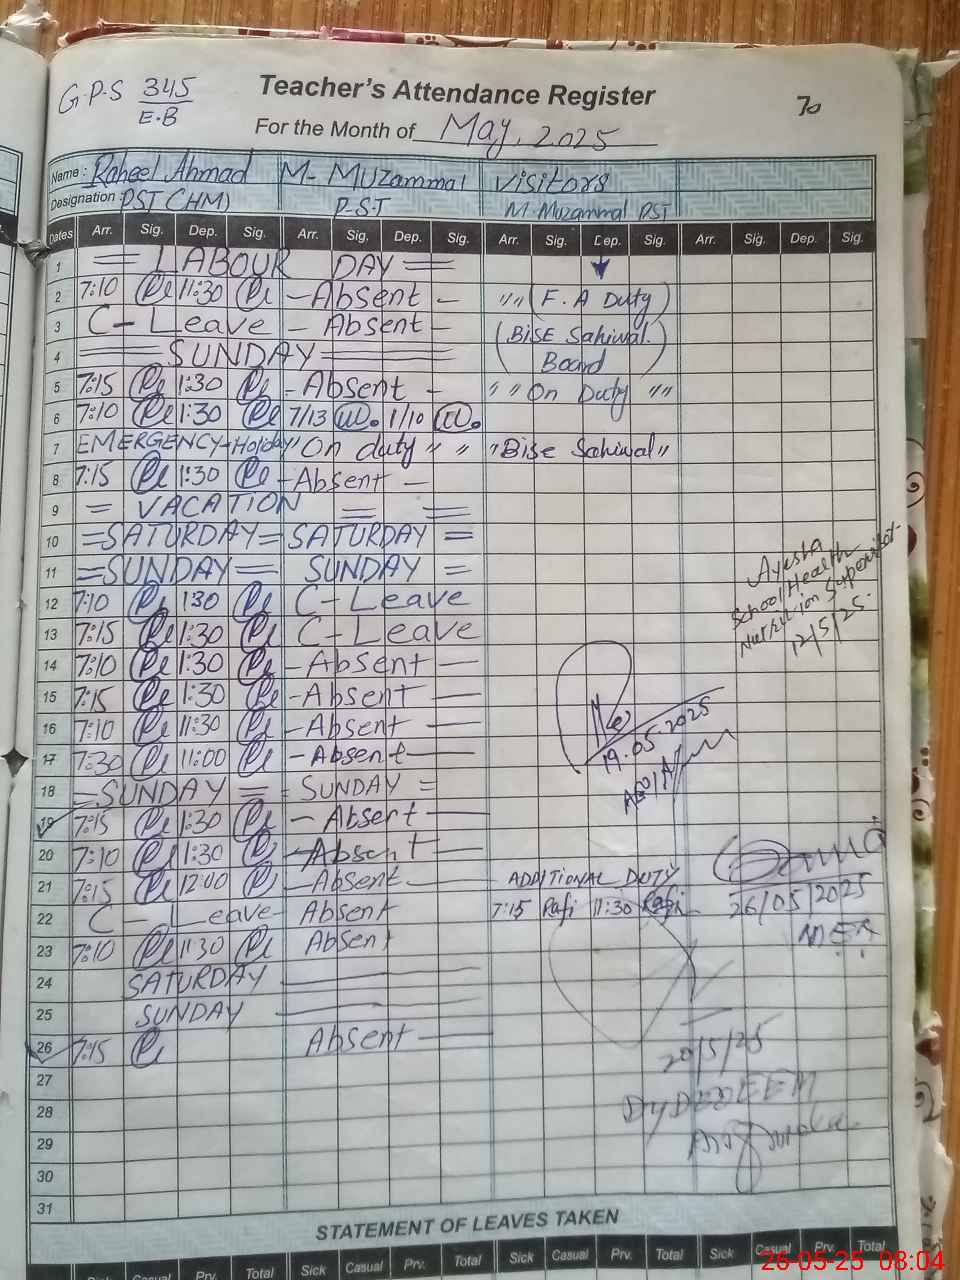 G.P.S 345
E.B
Teacher's Attendance Register
70
For the Month of May, 2025
Name: Raheel Ahmad M- Muzammal visitors
Designation: PST (HM) P-S-T M. Muzammal PST
Dates Arr. Sig. Dep. Sig. Arr. Sig. Dep. Sig. Arr. Sig. Dep. Sig. Arr. Sig. Dep. Sig.
1 = LABOUR DAY =
2 7:10 11:30 - Absent - "" (F.A Duty)
3 C- Leave - Absent - (BiSE Sahiwal.
4 SUNDAY Board)
5 7:15 1:30 - Absent - "" On Duty ""
6 7:10 1:30 7/13 1/10
7 EMERGENCY-Holiday "On duty " " "Bise Sahiwal"
8 7:15 1:30 - Absent -
9 = VACATION = =
10 =SATURDAY= SATURDAY =
11 =SUNDAY= SUNDAY =
12 7:10 130 C- Leave
13 7:15 1:30 C- Leave
14 7:10 1:30 - Absent -
15 7:15 1:30 - Absent -
16 7:10 11:30 - Absent -
17 7:30 11:00 - Absent -
18 =SUNDAY= = SUNDAY =
19 7:15 1:30 - Absent -
20 7:10 1:30 - Absent -
21 7:15 12:00 - Absent - ADDITIONAL DUTY
22 C - Leave - Absent 7:15 Rafi 11:30 Rafi
23 7:10 11:30 Absent
24 SATURDAY
25 SUNDAY
26 7:15 Absent
27
28
29
30
31
Ayesha
School Health
Nutrition Supervisor
12/5/25.
19.05.2025
26/05/2025
MEA
20/5/25
STATEMENT OF LEAVES TAKEN
Sick Casual Prv. Total Sick Casual Prv. Total Sick Casual Prv. Total Sick Casual Prv. Total
26-05-25 08:04